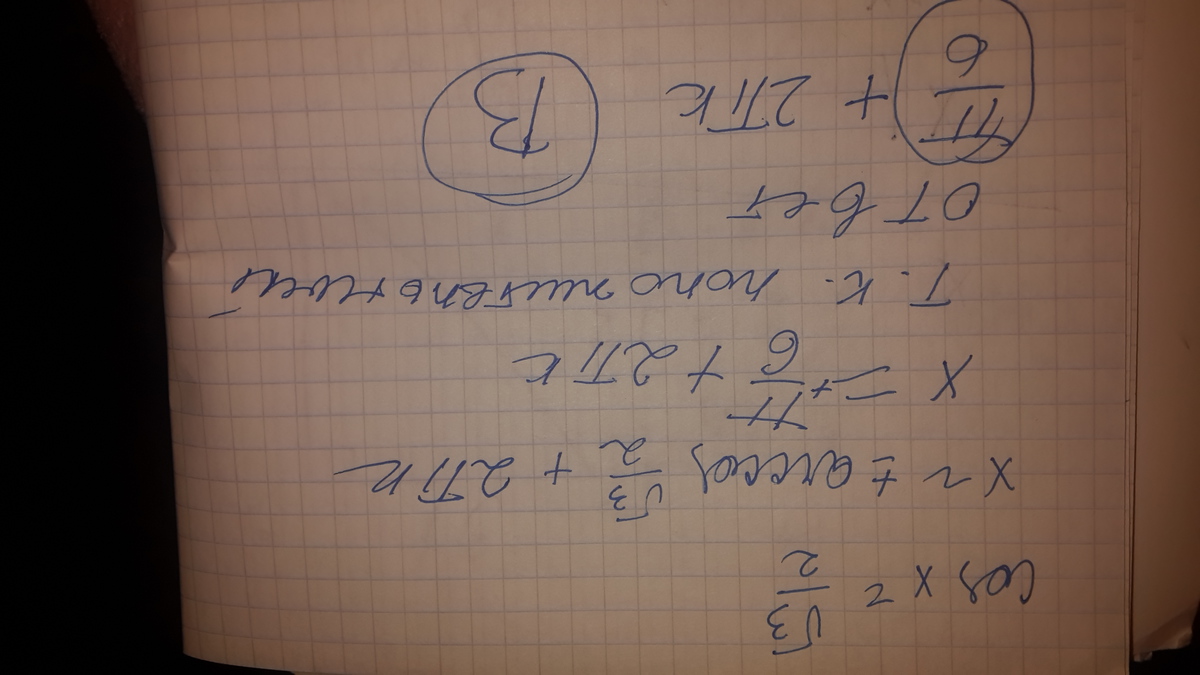 cos x = √3/2
x = ± arccos √3/2 + 2πk
x = + π/6 + 2πk
Т.к. положительный
ответ
π/6 + 2πk
В